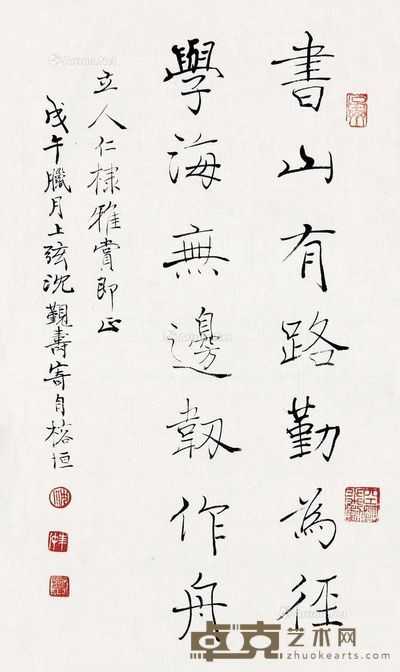 書山有路勤為徑
學海無邊韌作舟
立人仁棣雅賞即正
戊午臘月上弦沈覲壽寄自榕垣
卓克艺术网
zhuokearts.com